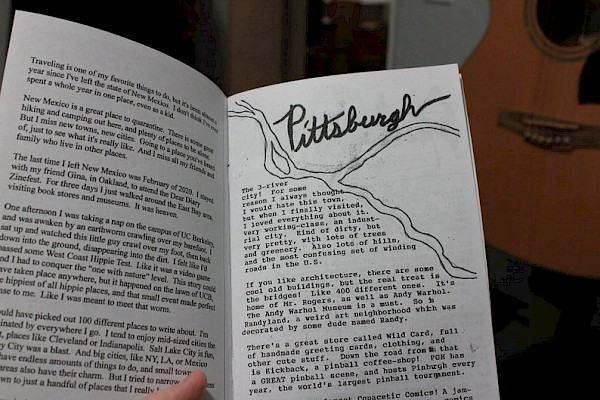 Traveling is one of my favorite things to do, but it's been almost a
year since I've left the state of New Mexico. I don't think I've ever
spent a whole year in one place, even as a kid.
New Mexico is a great place to quarantine. There is some great
hiking and camping out here, and plenty of places to be alone.
But I miss new towns, new cities. Going to a place you've heard
of, just to see what it's really like. And I miss all my friends and
family who live in other places.
The last time I left New Mexico was February of 2020. I stayed
with my friend Gina, in Oakland, to attend the Dear Diary
Zinefest. For three days I just walked around the East Bay area,
visiting book stores and museums. It was heaven.
One afternoon I was taking a nap on the campus of UC Berkley,
and was awaken by an earthworm crawling over my barefoot. I
sat up and watched this little guy crawl over my foot, then back
down into the ground, disappearing into the dirt. I felt like I'd
passed some West Coast Hippie Test. Like it was a video game
and I had to conquer the "one with nature" level. This story could
have taken place anywhere, but it happened on the lawn of UCB,
hippiest of all hippie places, and that small event made perfect
to me. Like I was meant to meet that worm.
could have picked out 100 different places to write about. I'm
by everywhere I go. I tend to enjoy mid-sized cities the
places like Cleveland or Indianapolis. Salt Lake City is fun,
City was a blast. And big cities, like NY, LA, or Mexico
have endless amounts of things to do, and small towns
areas also have their charm. But I tried to narrow
down to just a handful of places that I really
Pittsburgh
The 3-river
city! For some
reason I always thought
I would hate this town,
but when I finally visited,
I loved everything about it.
very working-class, an indust-
rial city. Kind of dirty, but
very pretty, with lots of trees
and greenery. Also lots of hills,
and the most confusing set of winding
roads in the U.S.
If you like architecture, there are some
cool old buildings, but the real treat is
the bridges! Like 400 different ones. It's
home of Mr. Rogers, as well as Andy Warhol.
The Andy Warhol Museum is a must. So is
Randyland, a weird art neighborhood which was
decorated by some dude named Randy.
There's a great store called Wild Card, full
of handmade greeting cards, clothing, and
other cute stuff. Down the road from that
is Kickback, a pinball coffee-shop! PGH has
a GREAT pinball scene, and hosts Pinburgh every
year, the world's largest pinball tournment.
Copacetic Comics! A jam-
comics